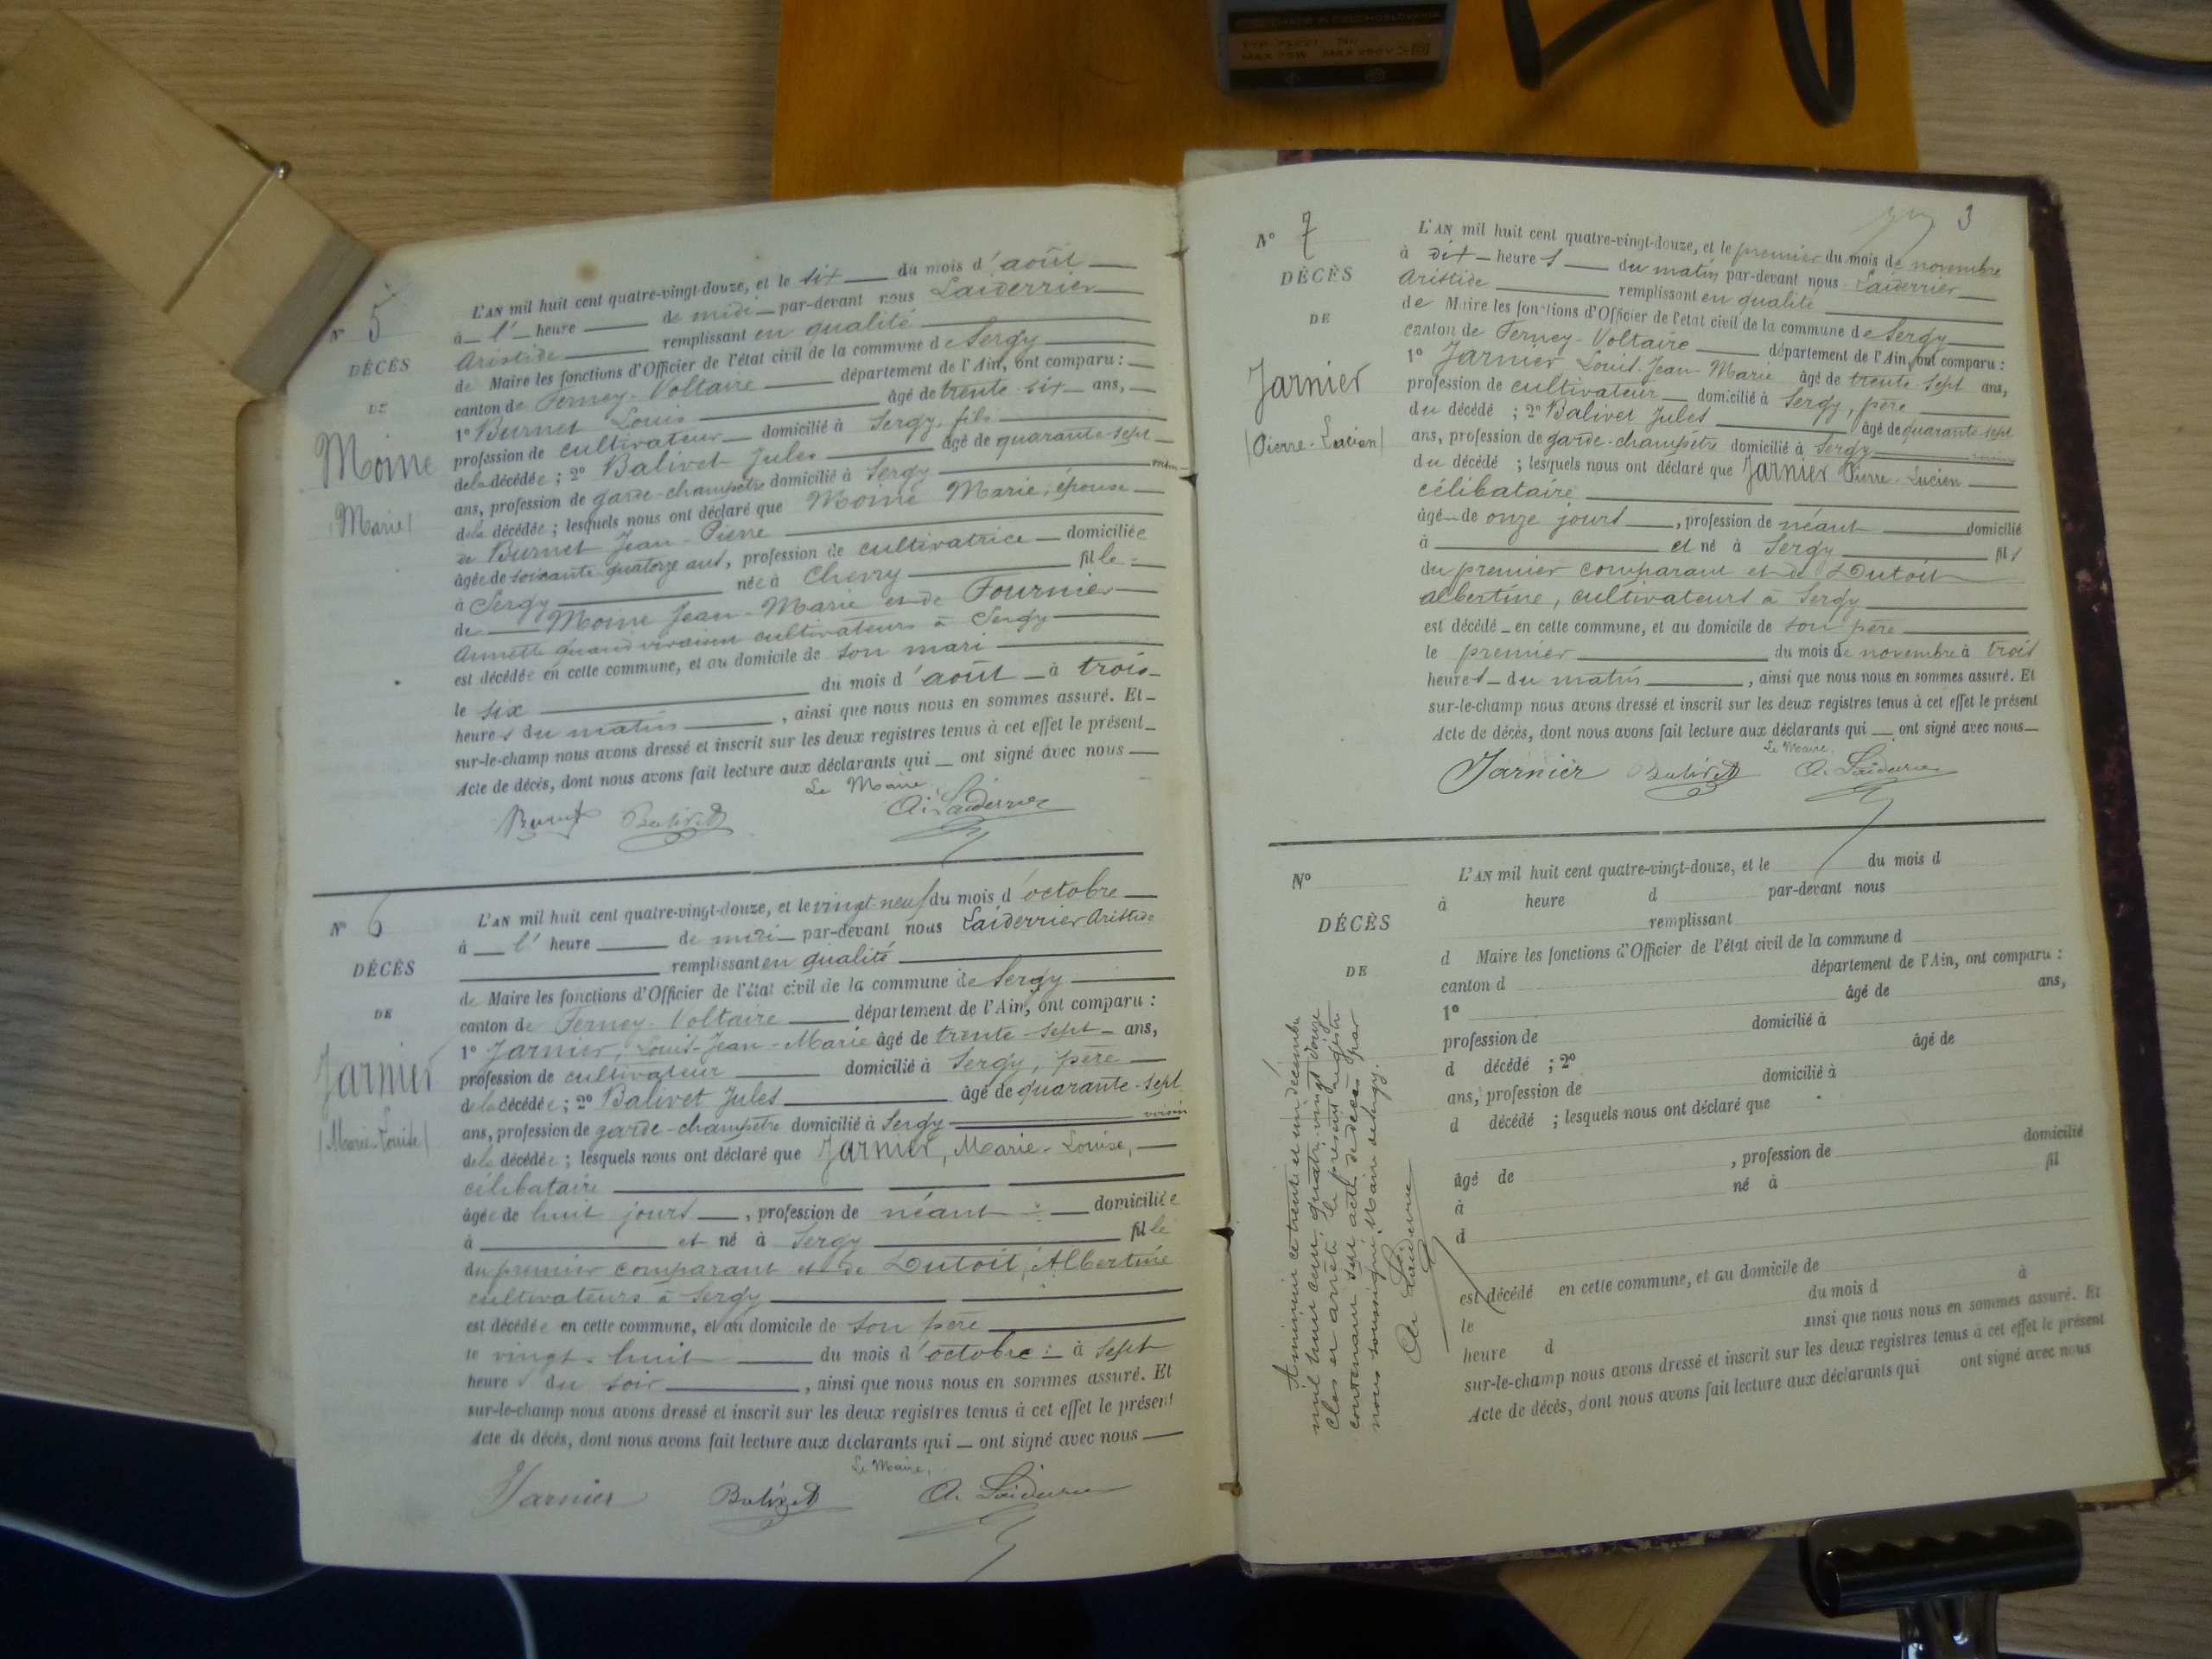 MADE IN CZECHOSLOVAKIA
N° 5
DÉCÈS
DE
Moine
(Marie)
L'AN mil huit cent quatre-vingt-douze, et le six du mois d'août
à l' heure de midi par-devant nous Laiderrier
Aristide remplissant en qualité
de Maire les fonctions d'Officier de l'état civil de la commune de Sergy
canton de Ferney-Voltaire département de l'Ain, ont comparu :
1° Burnet Louis âgé de trente six ans,
profession de cultivateur domicilié à Sergy, fils
de la décédée ; 2° Balivet Jules âgé de quarante-sept
ans, profession de garde-champêtre domicilié à Sergy
de la décédée ; lesquels nous ont déclaré que Moine Marie, épouse
de Burnet Jean-Pierre
âgée de soixante quatorze ans, profession de cultivatrice domiciliée
à Sergy née à Chevry fille
de Moine Jean-Marie et de Fournier
Annette quand vivaient cultivateurs à Sergy
est décédée en cette commune, et au domicile de son mari
le six du mois d'août à trois
heures du matin, ainsi que nous nous en sommes assuré. Et
sur-le-champ nous avons dressé et inscrit sur les deux registres tenus à cet effet le présent
Acte de décès, dont nous avons fait lecture aux déclarants qui ont signé avec nous
Le Maire
Burnet Balivet A. Laiderrier
N° 6
DÉCÈS
DE
Jarnier
(Marie-Louise)
L'AN mil huit cent quatre-vingt-douze, et le vingt-neuf du mois d'octobre
à l' heure de midi par-devant nous Laiderrier Aristide
remplissant en qualité
de Maire les fonctions d'Officier de l'état civil de la commune de Sergy
canton de Ferney-Voltaire département de l'Ain, ont comparu :
1° Jarnier, Louis-Jean-Marie âgé de trente-sept ans,
profession de cultivateur domicilié à Sergy, père
de la décédée ; 2° Balivet Jules âgé de quarante-sept
ans, profession de garde-champêtre domicilié à Sergy voisin
de la décédée ; lesquels nous ont déclaré que Jarnier, Marie-Louise,
célibataire
âgée de huit jours, profession de néant domiciliée
à et né à Sergy fille
du premier comparant et de Dutoit, Albertine
cultivateurs à Sergy
est décédée en cette commune, et au domicile de son père
le vingt-huit du mois d'octobre à sept
heures du soir, ainsi que nous nous en sommes assuré. Et
sur-le-champ nous avons dressé et inscrit sur les deux registres tenus à cet effet le présent
Acte de décès, dont nous avons fait lecture aux déclarants qui ont signé avec nous
Le Maire,
Jarnier Balivet A. Laiderrier
3
N° 7
DÉCÈS
DE
Jarnier
(Pierre-Lucien)
L'AN mil huit cent quatre-vingt-douze, et le premier du mois de novembre
à dix heures du matin par-devant nous Laiderrier
Aristide remplissant en qualité
de Maire les fonctions d'Officier de l'état civil de la commune de Sergy
canton de Ferney-Voltaire département de l'Ain, ont comparu :
1° Jarnier Louis-Jean-Marie âgé de trente-sept ans,
profession de cultivateur domicilié à Sergy, père
du décédé ; 2° Balivet Jules âgé de quarante-sept
ans, profession de garde-champêtre domicilié à Sergy voisin
du décédé ; lesquels nous ont déclaré que Jarnier Pierre-Lucien
célibataire
âgé de onze jours, profession de néant domicilié
à et né à Sergy fils
du premier comparant et de Dutoit
Albertine, cultivateurs à Sergy
est décédé en cette commune, et au domicile de son père
le premier du mois de novembre à trois
heures du matin, ainsi que nous nous en sommes assuré. Et
sur-le-champ nous avons dressé et inscrit sur les deux registres tenus à cet effet le présent
Acte de décès, dont nous avons fait lecture aux déclarants qui ont signé avec nous
Le Maire.
Jarnier Balivet A. Laiderrier
N°
DÉCÈS
DE
L'AN mil huit cent quatre-vingt-douze, et le du mois d
à heure d par-devant nous
remplissant
d Maire les fonctions d'Officier de l'état civil de la commune d
canton d département de l'Ain, ont comparu :
1° âgé de ans,
profession de domicilié à
d décédé ; 2° âgé de
ans, profession de domicilié à
d décédé ; lesquels nous ont déclaré que
âgé de , profession de domicilié
à né à fil
d
est décédé en cette commune, et au domicile de
le du mois d à
heure d ainsi que nous nous en sommes assuré. Et
sur-le-champ nous avons dressé et inscrit sur les deux registres tenus à cet effet le présent
Acte de décès, dont nous avons fait lecture aux déclarants qui ont signé avec nous
A minuit ce trente et un décembre
mil huit cent quatre-vingt douze
clos et arrêté le présent registre
contenant sept actes de décès par
nous soussigné, Maire de Sergy.
A. Laiderrier